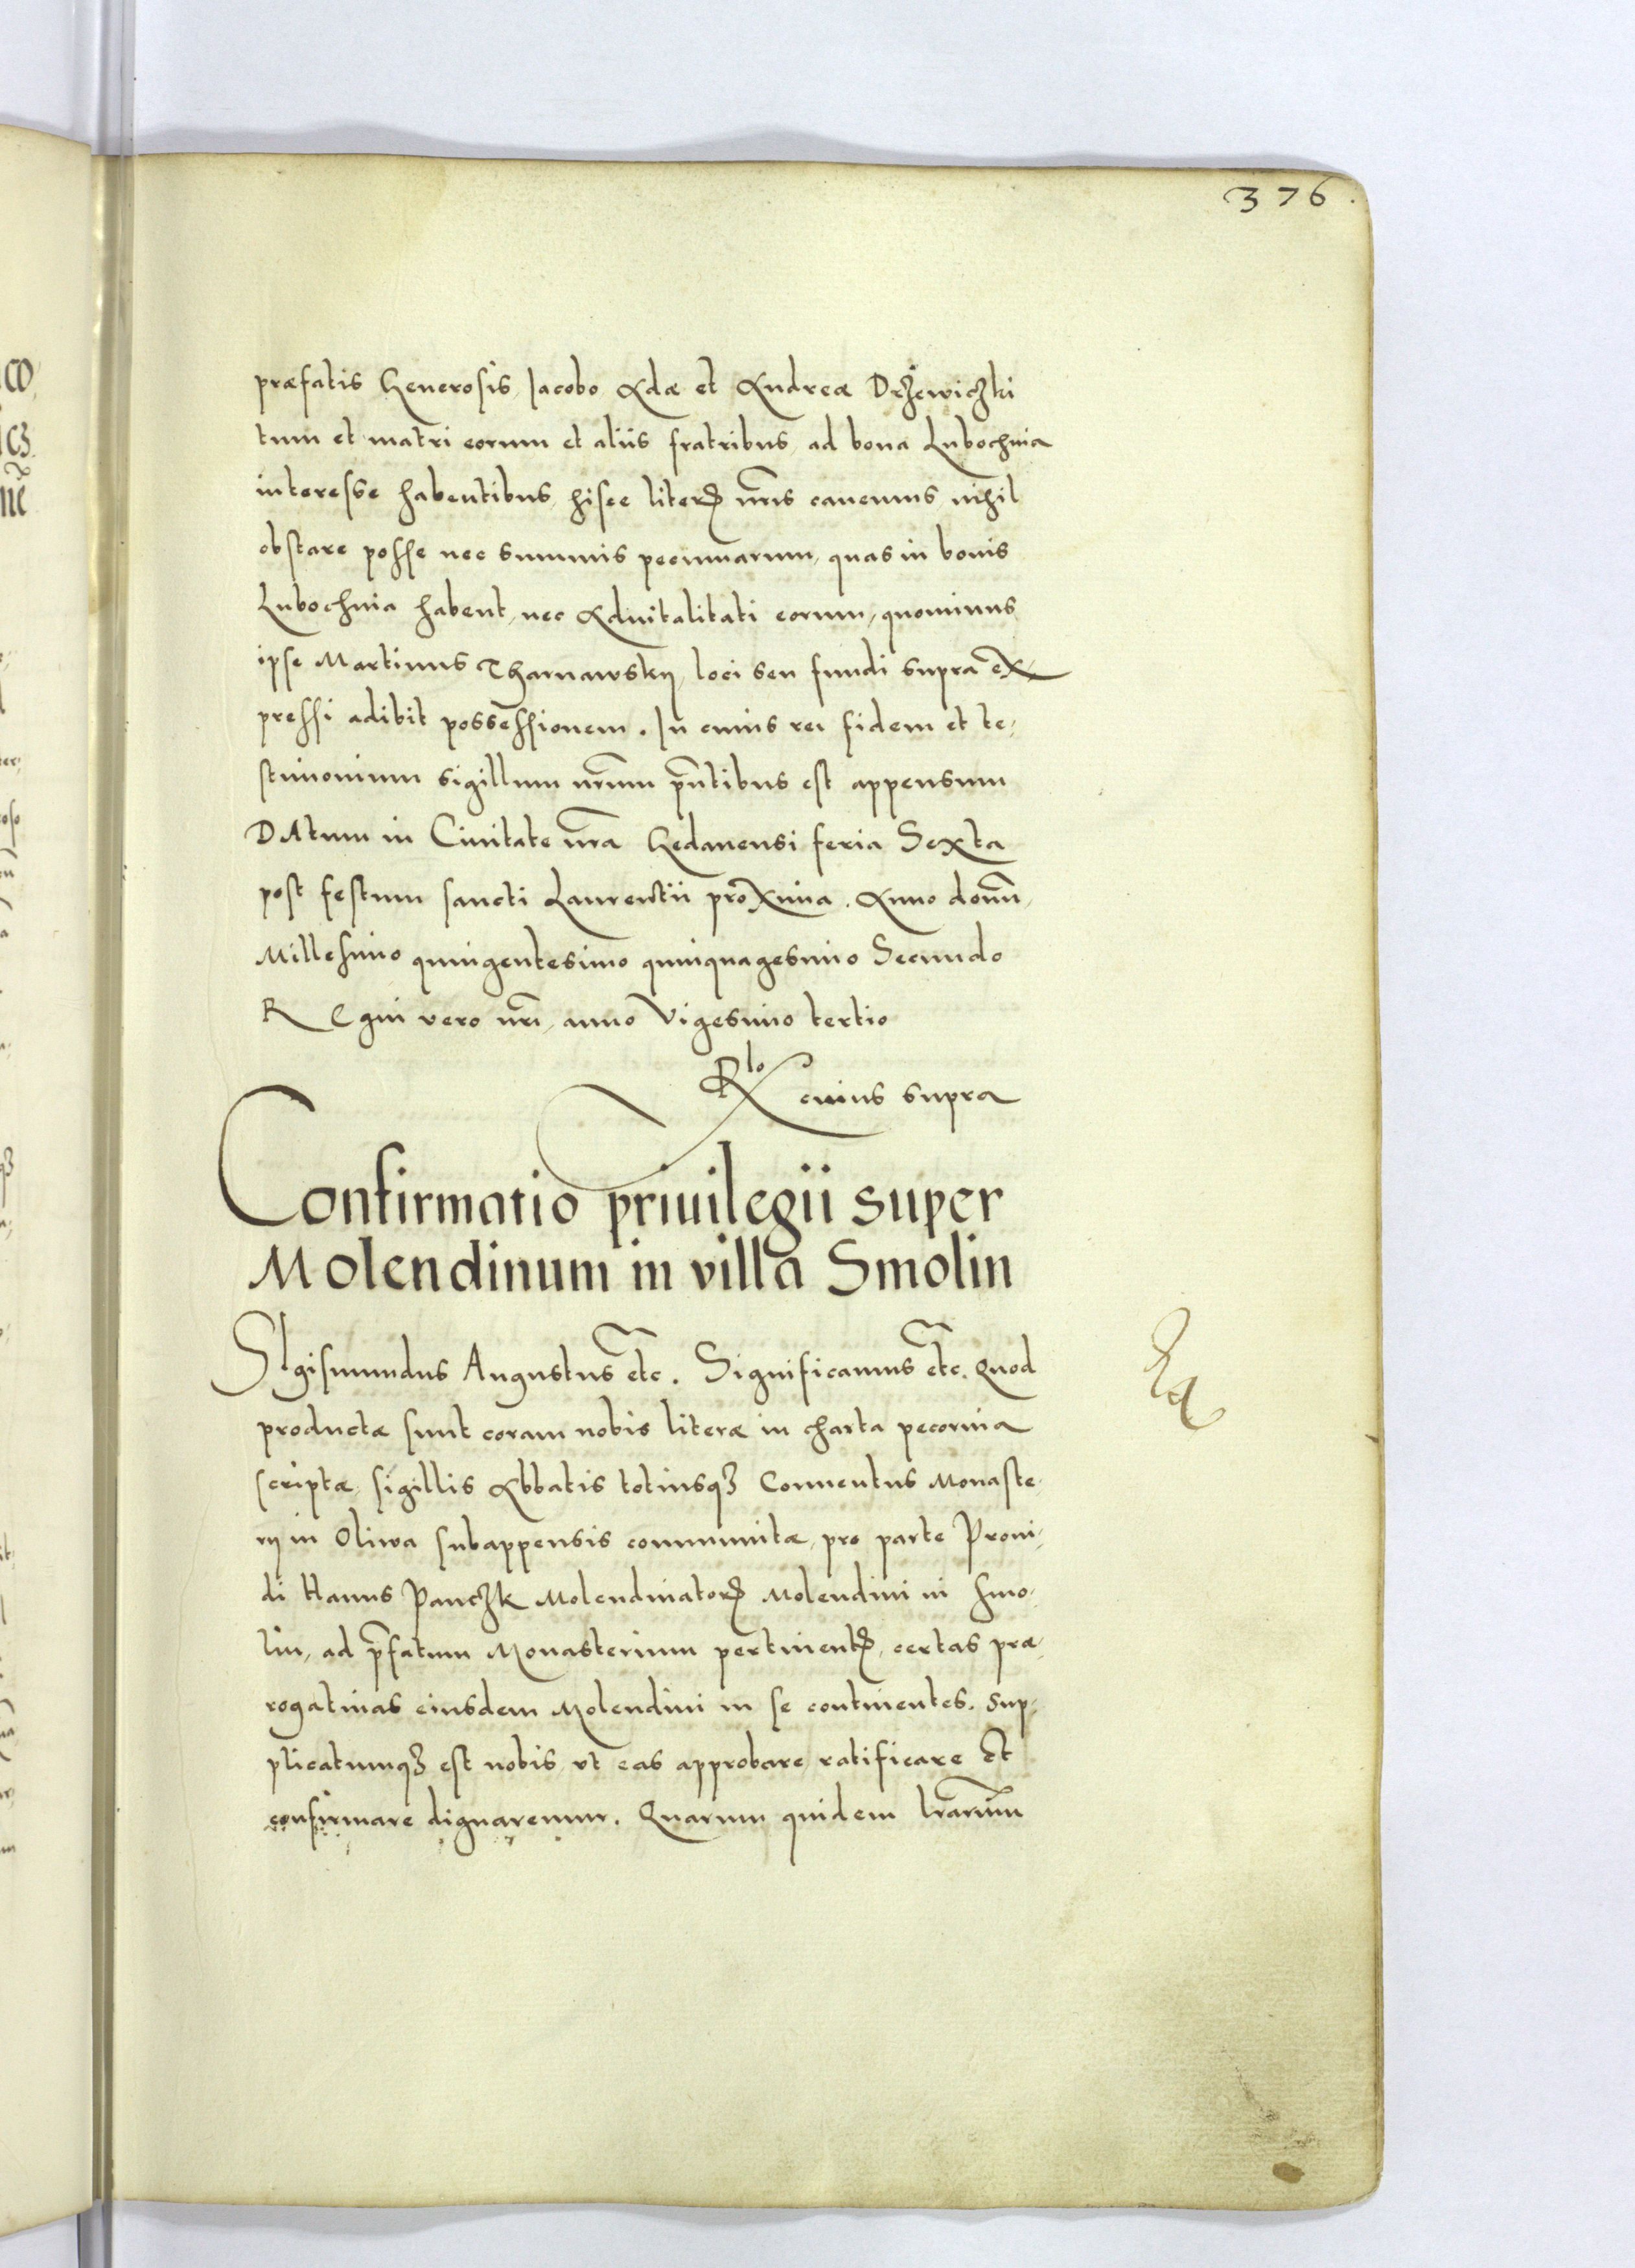 376.
præfatis Generosis Jacobo Adæ et Andreæ Drzewiczki
tum et matri eorum et aliis fratribus, ad bona Lubochnia
interesse habentibus, hisce literis nr̃is cauemus, nihil
obstare posse nec summis pecuniarum, quas in bonis
Lubochnia habent, nec Aduitalitati eorum, quominus
ipse Martinus Tharnawskij, loci seu fundi supra ex-
pressi adibit possessionem. In cuius rei fidem et te-
stimonium sigillum nr̃um pñtibus est appensum
DAtum in Ciuitate nr̃a Gedanensi feria Sexta
post festum sancti Laurentii proxima. Anno domĩ,
Millesimo quingentesimo quinquagesimo Secundo
REgni vero nr̃i, anno vigesimo tertio
Rlo cuius supra
Confirmatio priuilegii super
Molendinum in villa Smolin
SIgismundus Augustus etc. Significamus etc. Quod
productæ sunt coram nobis literæ in charta pecorina
scriptæ, sigillis Abbatis totiusqȝ Conuentus Monaste-
rij in Oliwa subappensis communitæ, pro parte Proui-
di Hanus Panczk Molendinatoris Molendini in Smo-
lin, ad p̃fatum Monasterium pertinentis, certas præ-
rogatiuas eiusdem Molendini in se continentes. Sup-
plicatumqȝ est nobis vt eas approbare ratificare Et
confirmare dignaremur. Quarum quidem lr̃arum